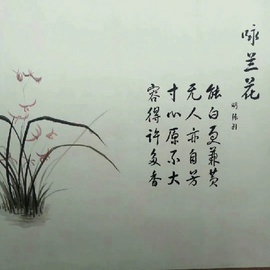 咏兰花
明 张羽
能白更兼黄
无人亦自芳
寸心原不大
容得许多香